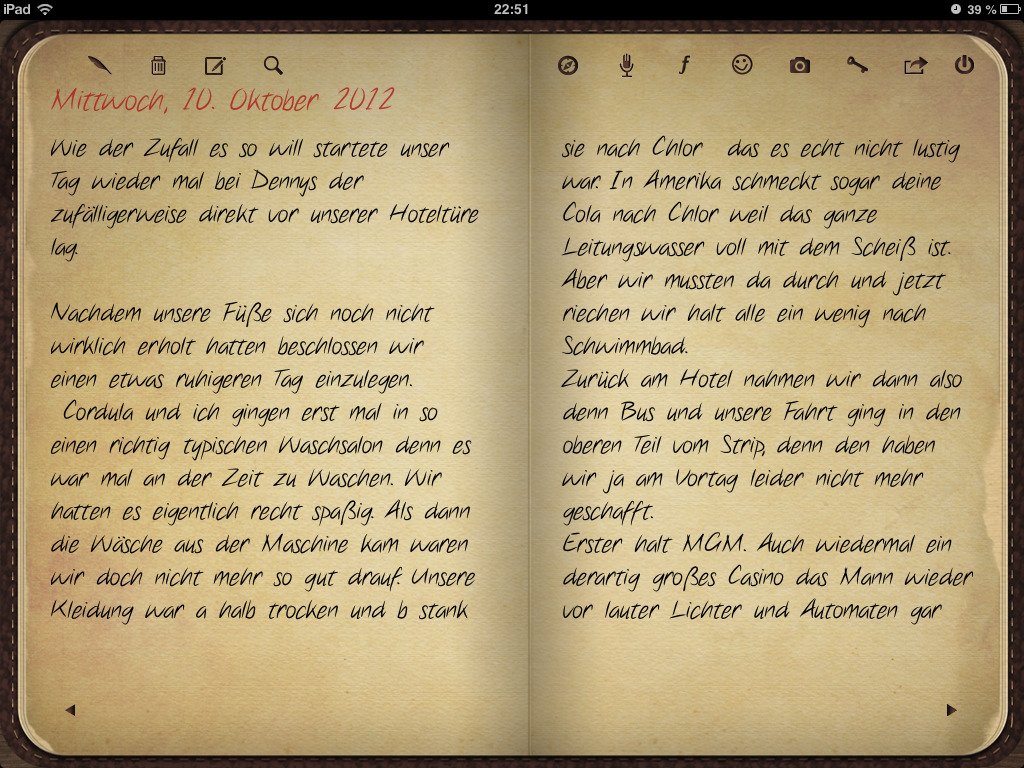 iPad 22:51 39 %
Mittwoch, 10. Oktober 2012
Wie der Zufall es so will startete unser
Tag wieder mal bei Dennys der
zufälligerweise direkt vor unserer Hoteltüre
lag.
Nachdem unsere Füße sich noch nicht
wirklich erholt hatten beschlossen wir
einen etwas ruhigeren Tag einzulegen.
Cordula und ich gingen erst mal in so
einen richtig typischen Waschsalon denn es
war mal an der Zeit zu Waschen. Wir
hatten es eigentlich recht spaßig. Als dann
die Wäsche aus der Maschine kam waren
wir doch nicht mehr so gut drauf. Unsere
Kleidung war a halb trocken und b stank
sie nach Chlor das es echt nicht lustig
war. In Amerika schmeckt sogar deine
Cola nach Chlor weil das ganze
Leitungswasser voll mit dem Scheiß ist.
Aber wir mussten da durch und jetzt
riechen wir halt alle ein wenig nach
Schwimmbad.
Zurück am Hotel nahmen wir dann also
denn Bus und unsere Fahrt ging in den
oberen Teil vom Strip, denn den haben
wir ja am Vortag leider nicht mehr
geschafft.
Erster halt MGM. Auch wiedermal ein
derartig großes Casino das Mann wieder
vor lauter Lichter und Automaten gar